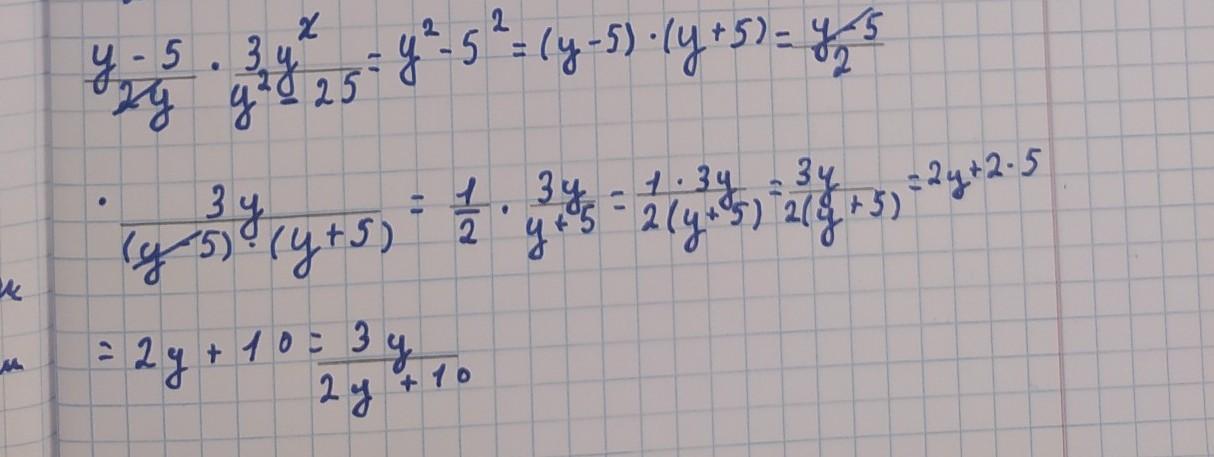 y - 5 / 2y · 3y² / y² - 25 = y² - 5² = (y - 5) · (y + 5) = y - 5 / 2
· 3y / (y - 5) · (y + 5) = 1/2 · 3y / y + 5 = 1 · 3y / 2(y + 5) = 3y / 2(y + 5) = 2y + 2 · 5
= 2y + 10 = 3y / 2y + 10